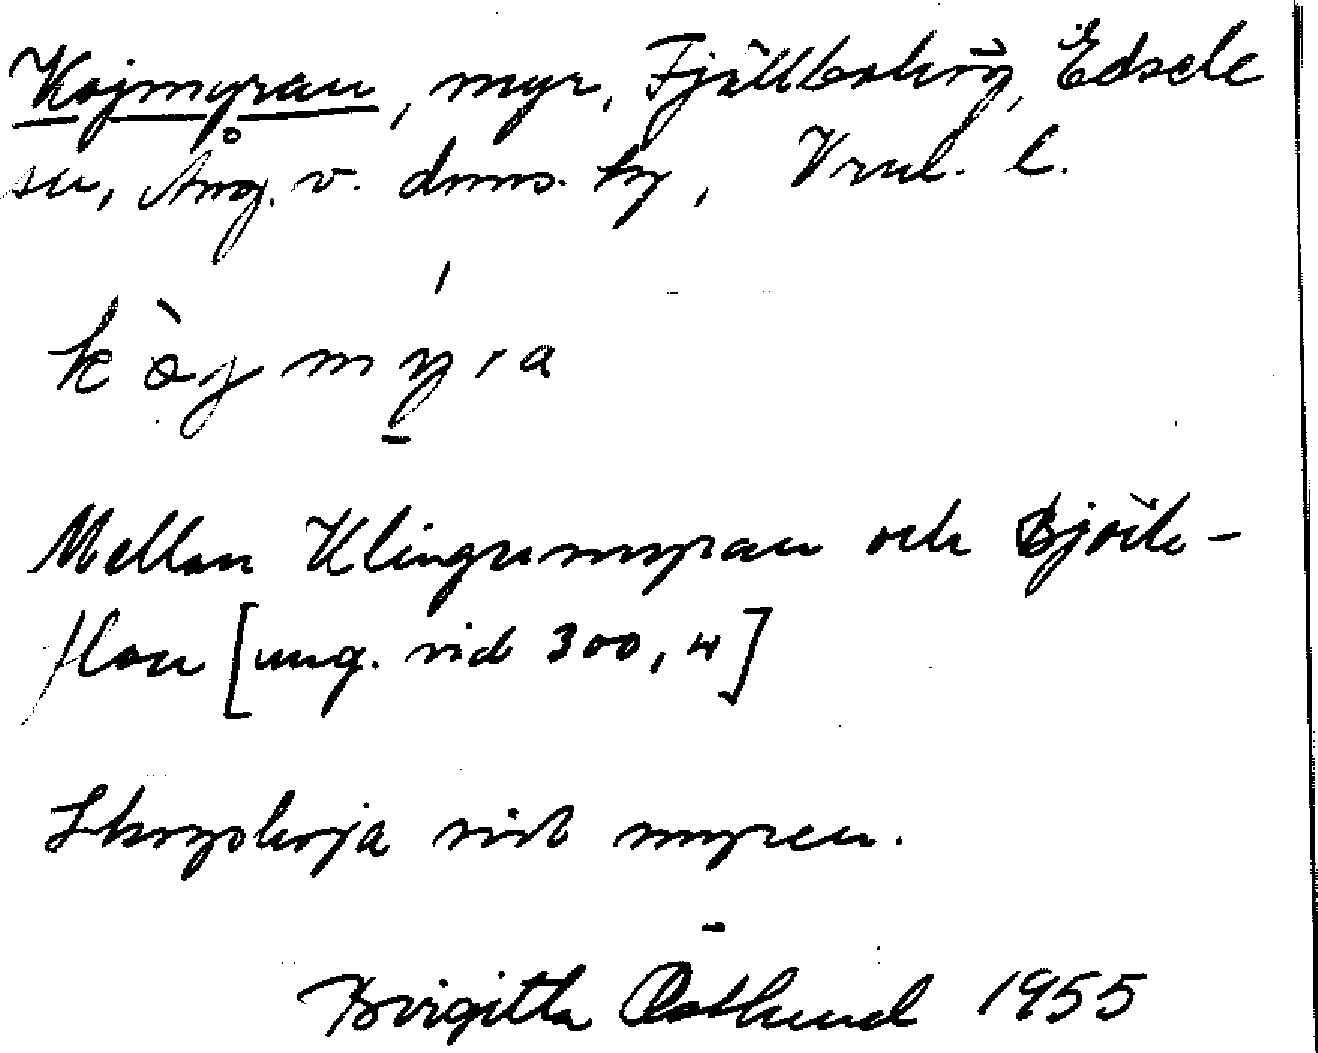 Kojmyran, myr, Fjällbohög, Edsele
sn, Ång. v. dms. by,
kòjmyra
Mellan Klingermyran och Björk-
flon [ung. vid 300,4]
Skogskoja vid myren.
Birgitta Östlund 1955